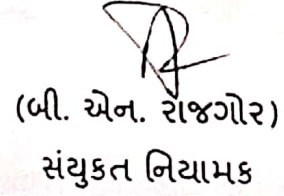 (બી. એન. રાજગોર)
સંયુકત નિયામક